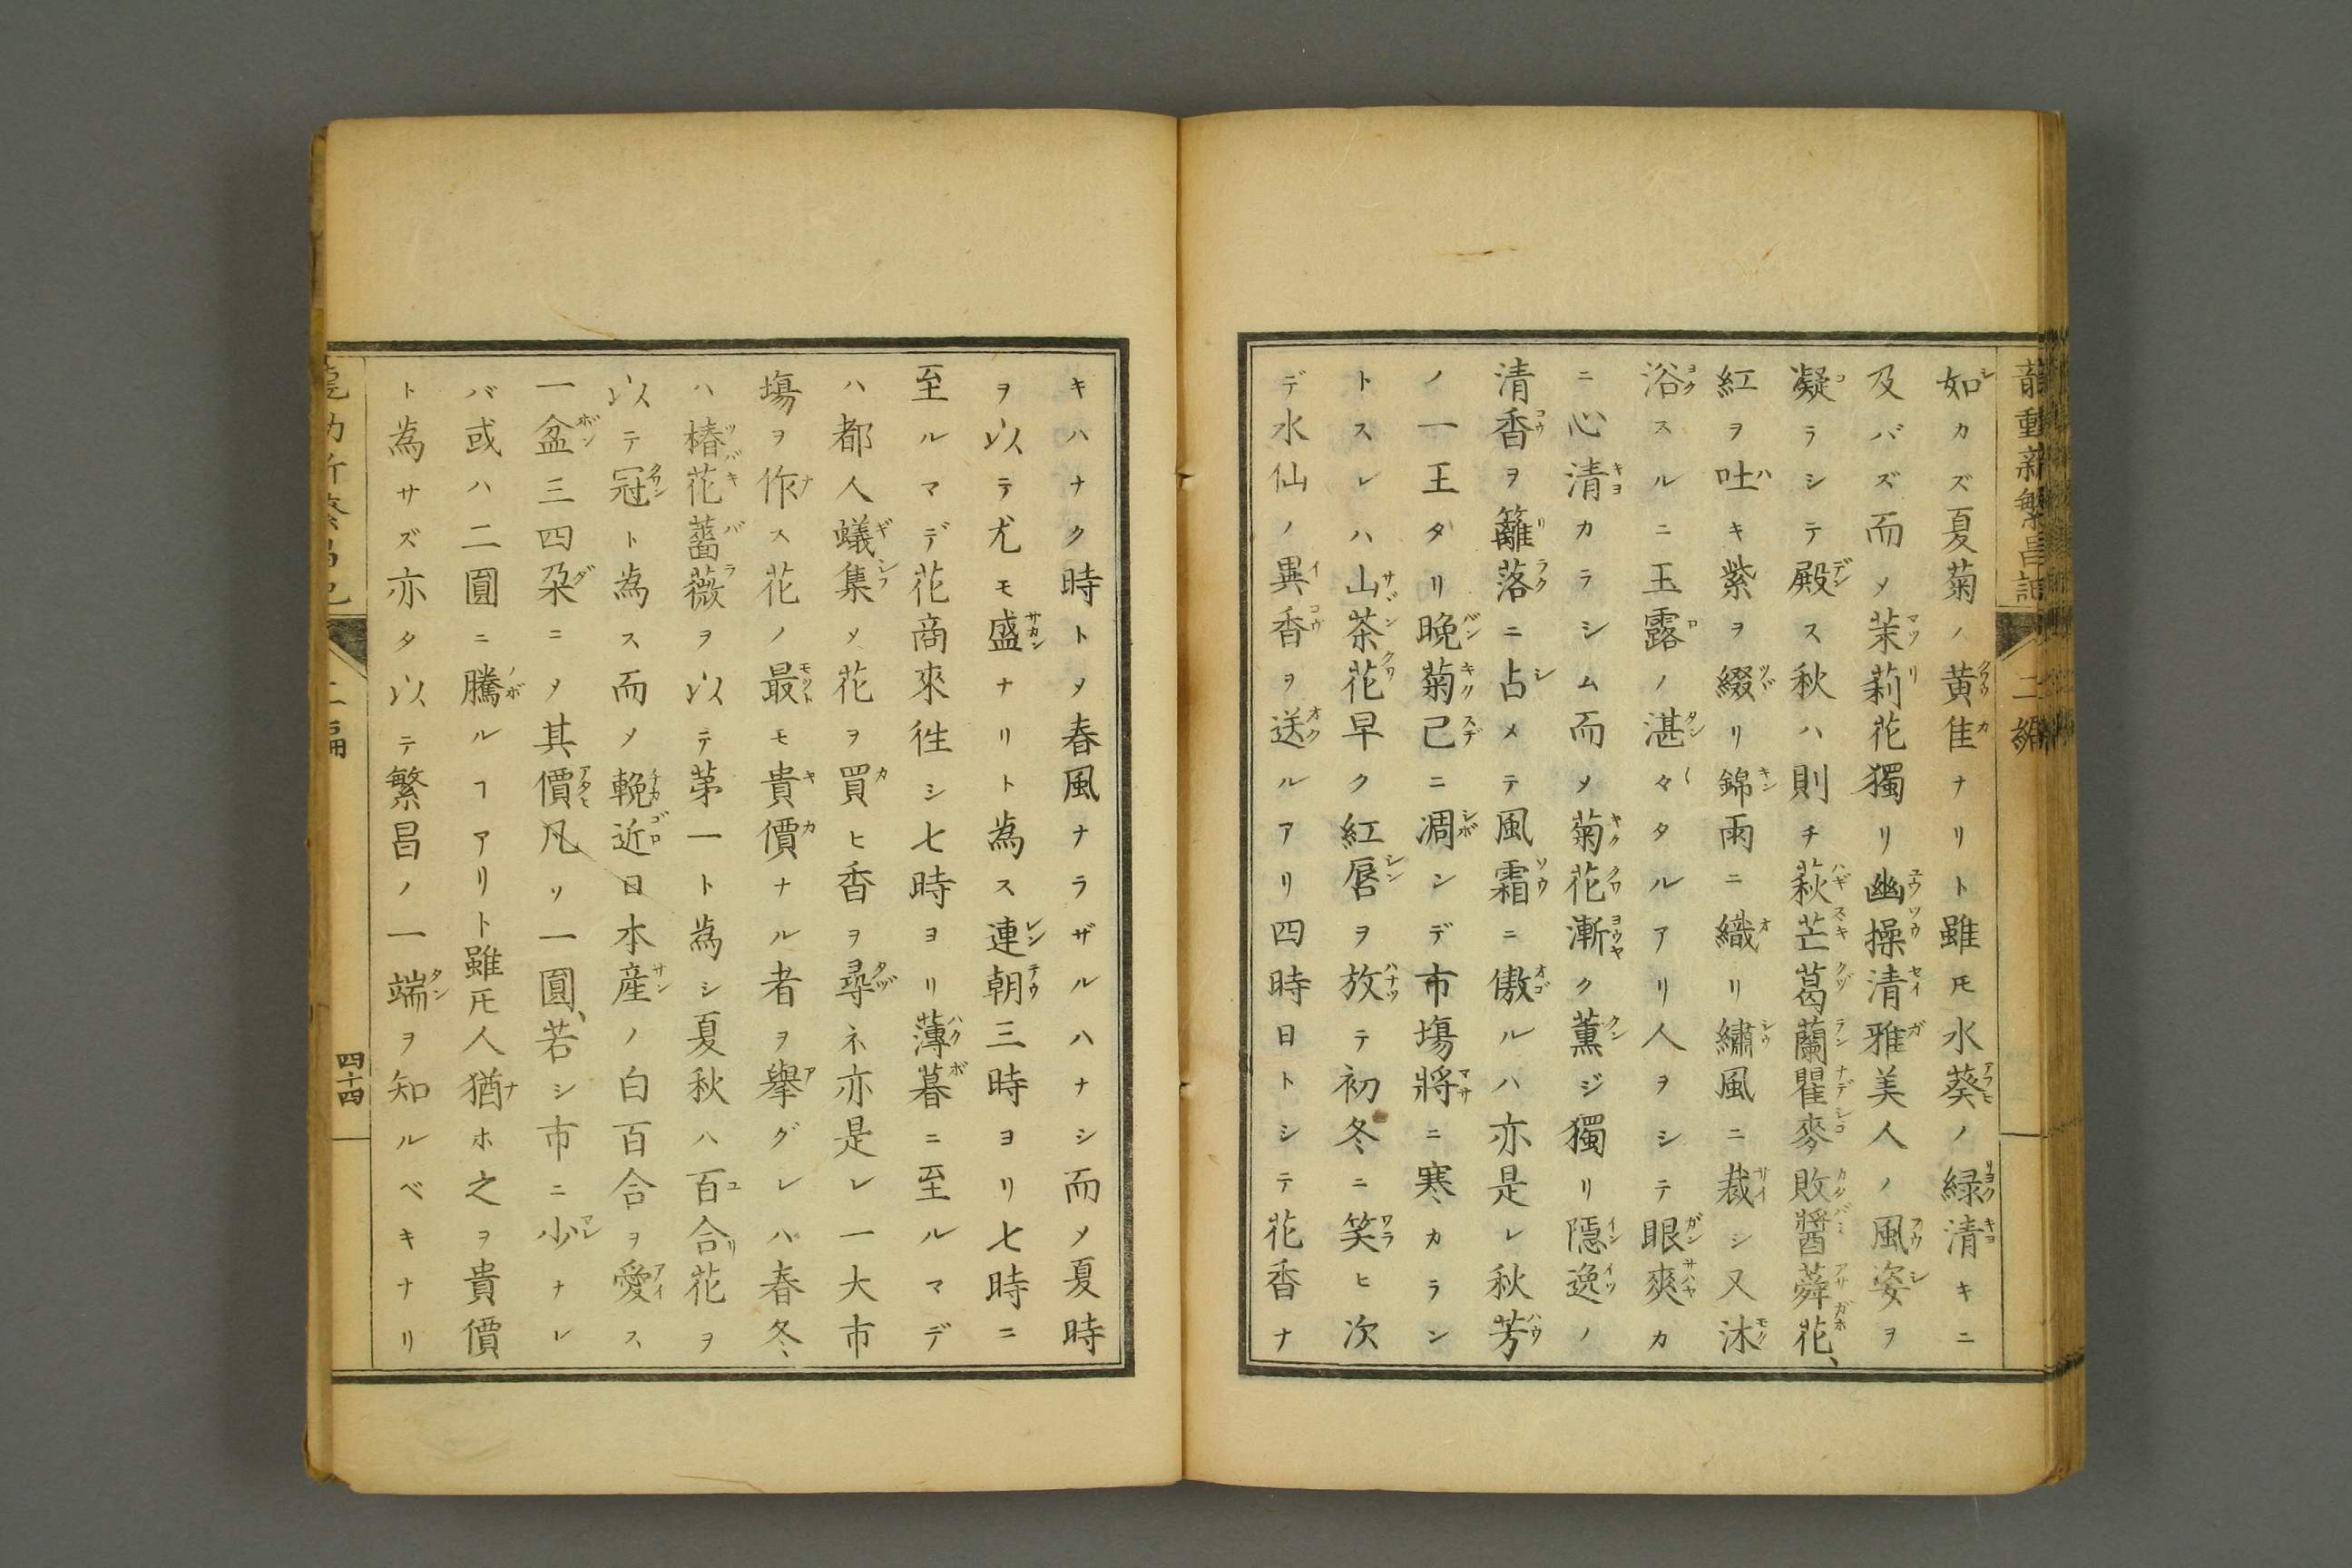 龍動新繁昌記 二編
如カズ夏菊ノ黄佳ナリト雖𪜈水葵ノ緑清キニ
及バズ而〆茉莉花獨リ幽操清雅美人ノ風姿ヲ
凝ラシテ殿ス秋ハ則チ萩芒葛蘭瞿麥敗醬蕣花、
紅ヲ吐キ紫ヲ綴リ錦雨ニ織リ繡風ニ裁シ又沐
浴スルニ玉露ノ湛々タルアリ人ヲシテ眼爽カ
ニ心清カラシム而〆菊花漸ク薫ジ獨リ隱逸ノ
清香ヲ籬落ニ占メテ風霜ニ傲ルハ亦是レ秋芳
ノ一王タリ晩菊已ニ凋ンデ市塲將ニ寒カラン
トスレハ山茶花早ク紅唇ヲ放テ初冬ニ笑ヒ次
デ水仙ノ異香ヲ送ルアリ四時日トシテ花香ナ
キハナク時ト〆春風ナラザルハナシ而〆夏時
ヲ以テ尤モ盛ナリト為ス連朝三時ヨリ七時ニ
至ルマデ花商來徃シ七時ヨリ薄暮ニ至ルマデ
ハ都人蟻集〆花ヲ買ヒ香ヲ尋ネ亦是レ一大市
塲ヲ作ス花ノ最モ貴價ナル者ヲ擧グレハ春冬
ハ椿花薔薇ヲ以テ苐一ト為シ夏秋ハ百合花ヲ
以テ冠ト為ス而〆輓近日本産ノ白百合ヲ愛ス
一盆三四朶ニ〆其價凡ソ一圓、若シ市ニ少ナレ
バ或ハ二圓ニ騰ルヿアリト雖𪜈人猶ホ之ヲ貴價
ト為サズ亦タ以テ繁昌ノ一端ヲ知ルベキナリ
二編 四十四